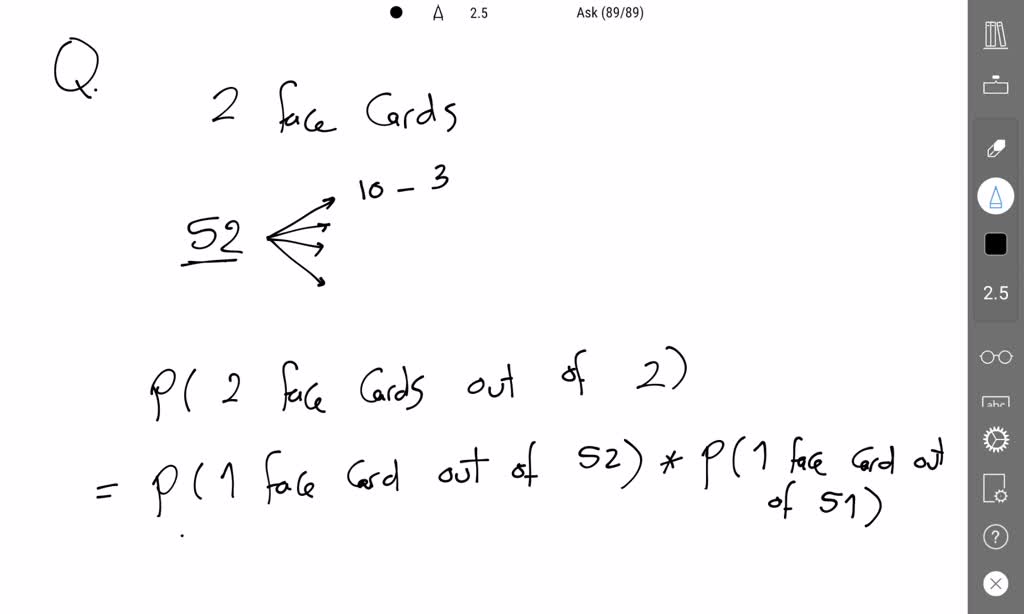 2.5 Ask (89/89)
Q.
2 face Cards
10 - 3
52
2.5
P( 2 face Cards out of 2)
abc
= P(1 face Card out of 52) * P(1 face Card out
of 51)
?